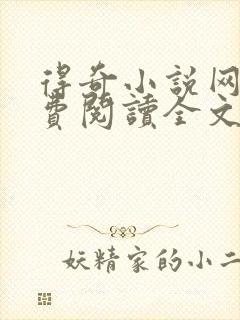 得奇小说网
费閱讀全文
妖精家的小二